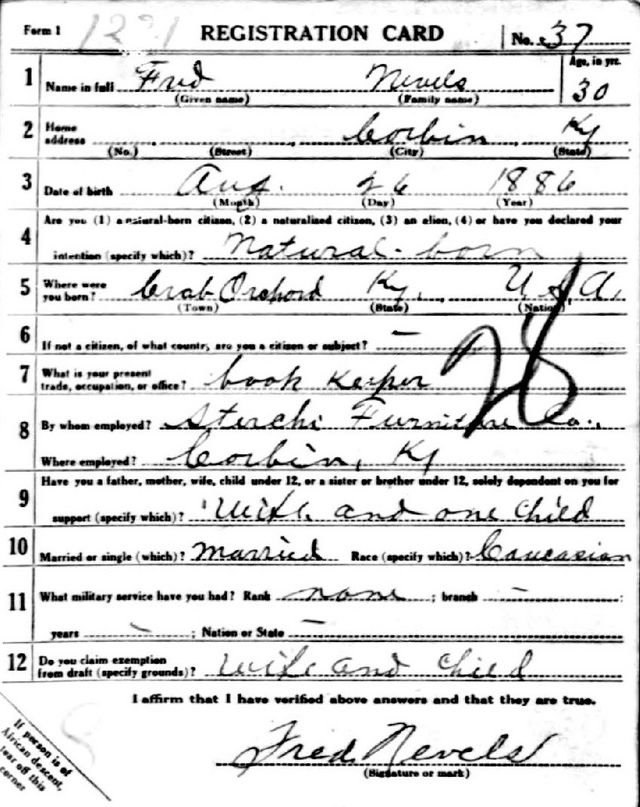 Form 1 REGISTRATION CARD No. 37
1 Name in full Fred Nevels Age, in yrs. 30
(Given name) (Family name)
2 Home address Corbin Ky
(No.) (Street) (City) (State)
3 Date of birth Aug. 26 1886
(Month) (Day) (Year)
4 Are you (1) a natural-born citizen, (2) a naturalized citizen, (3) an alien, (4) or have you declared your
intention (specify which)? Natural-born
5 Where were you born? Crab Orchord Ky. U.S.A.
(Town) (State) (Nation)
6 If not a citizen, of what country are you a citizen or subject? —
7 What is your present trade, occupation, or office? book keeper
28
8 By whom employed? Sterchi Furniture Co.,
Where employed? Corbin, Ky
9 Have you a father, mother, wife, child under 12, or a sister or brother under 12, solely dependent on you for
support (specify which)? Wife and one child
10 Married or single (which)? Married Race (specify which)? Caucasian
11 What military service have you had? Rank none ; branch —
years — ; Nation or State —
12 Do you claim exemption from draft (specify grounds)? Wife and child
I affirm that I have verified above answers and that they are true.
Fred Nevels
(Signature or mark)
If person is of
African descent,
tear off this
corner